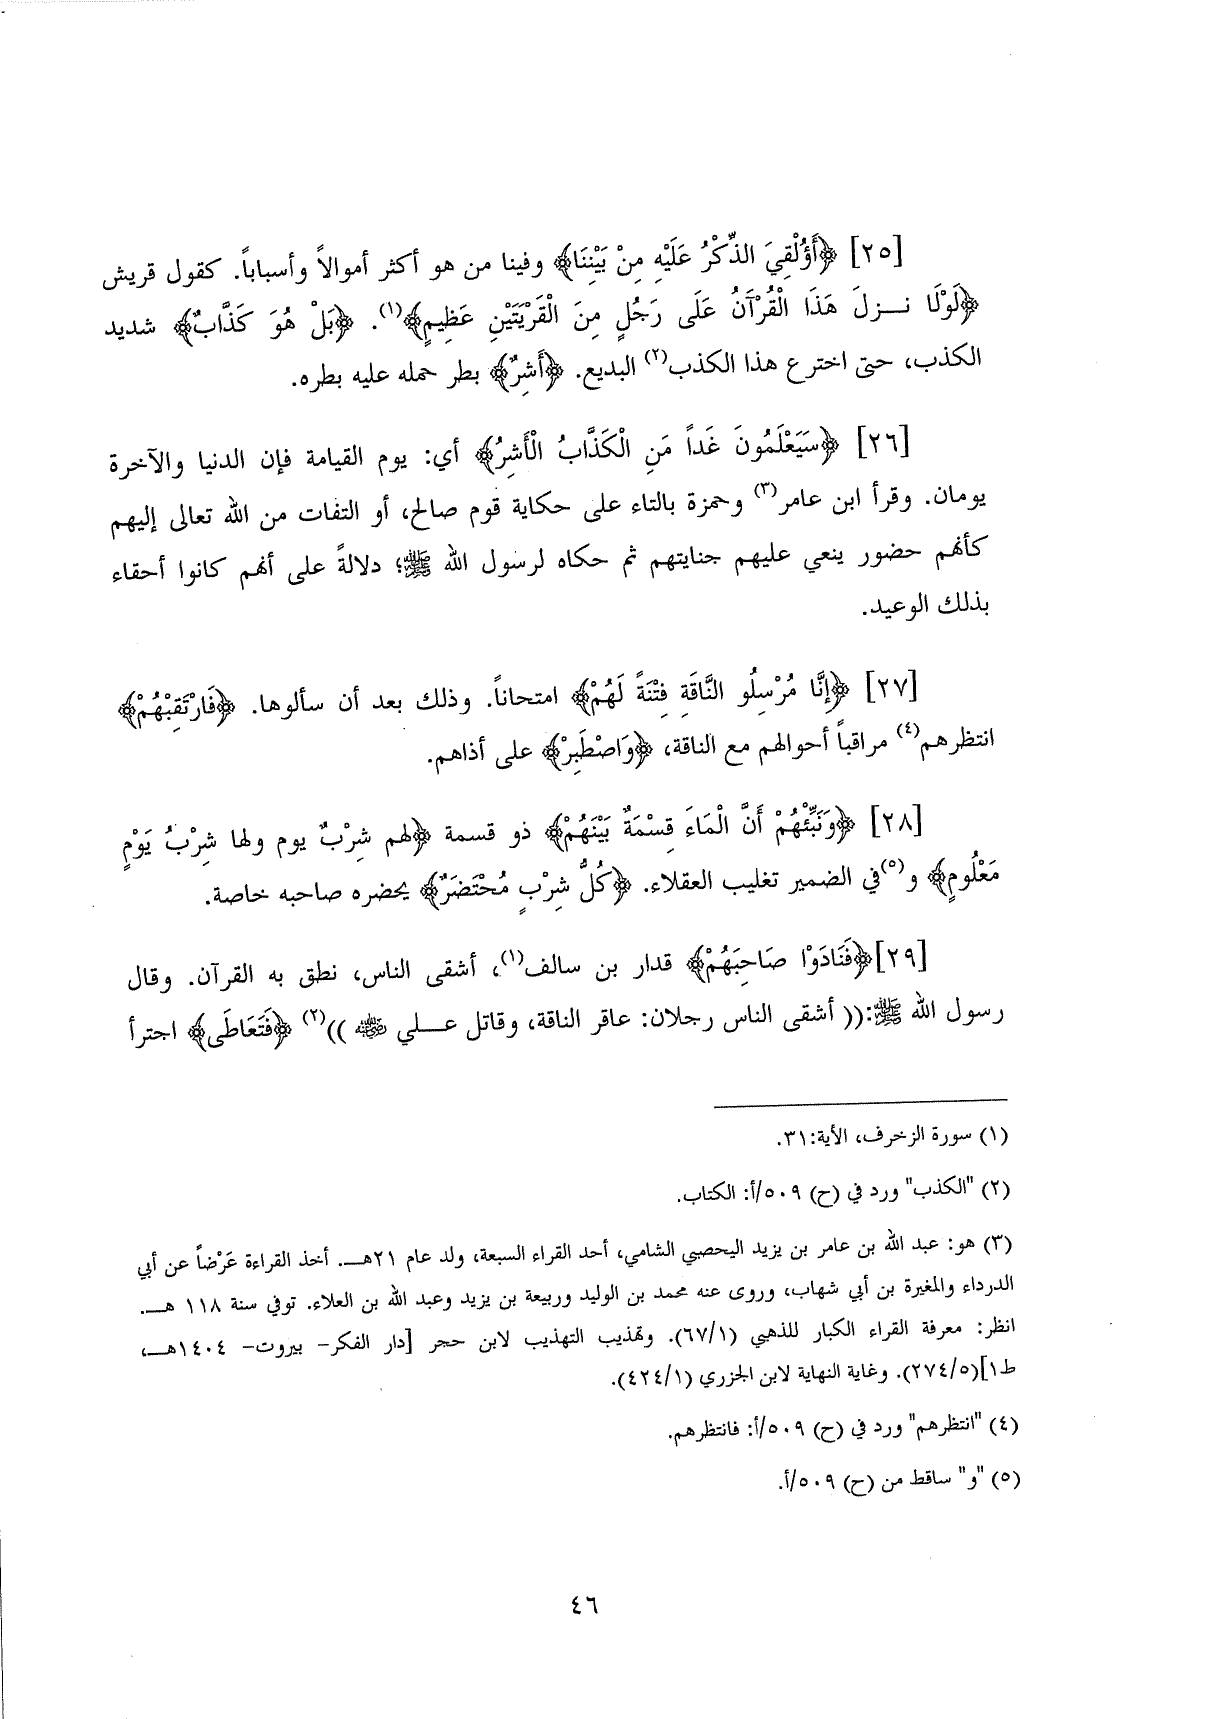 [٢٥] ﴿أَؤُلْقِيَ الذِّكْرُ عَلَيْهِ مِنْ بَيْنِنَا﴾ وفينا من هو أكثر أموالاً وأسباباً. كقول قريش
﴿لَوْلَا نـزلَ هَذَا الْقُرْآنُ عَلَى رَجُلٍ مِنَ الْقَرْيَتَيْنِ عَظِيمٍ﴾(١). ﴿بَلْ هُوَ كَذَّابٌ﴾ شديد
الكذب، حتى اخترع هذا الكذب(٢) البديع. ﴿أَشِرٌ﴾ بطر حمله عليه بطره.
[٢٦] ﴿سَيَعْلَمُونَ غَداً مَنِ الْكَذَّابُ الْأَشِرُ﴾ أي: يوم القيامة فإن الدنيا والآخرة
يومان. وقرأ ابن عامر(٣) وحمزة بالتاء على حكاية قوم صالح، أو التفات من الله تعالى إليهم
كأنهم حضور ينعي عليهم جنايتهم ثم حكاه لرسول الله ﷺ؛ دلالةً على أنهم كانوا أحقاء
بذلك الوعيد.
[٢٧] ﴿إِنَّا مُرْسِلُو النَّاقَةِ فِتْنَةً لَهُمْ﴾ امتحاناً. وذلك بعد أن سألوها. ﴿فَارْتَقِبْهُمْ﴾
انتظرهم(٤) مراقباً أحوالهم مع الناقة، ﴿وَاصْطَبِرْ﴾ على أذاهم.
[٢٨] ﴿وَنَبِّئْهُمْ أَنَّ الْمَاءَ قِسْمَةٌ بَيْنَهُمْ﴾ ذو قسمة ﴿لهم شِرْبٌ يوم ولها شِرْبُ يَوْمٍ
مَعْلُومٍ﴾ و(٥)في الضمير تغليب العقلاء. ﴿كُلُّ شِرْبٍ مُحْتَضَرٌ﴾ يحضره صاحبه خاصة.
[٢٩]﴿فَنَادَوْا صَاحِبَهُمْ﴾ قدار بن سالف(١)، أشقى الناس، نطق به القرآن. وقال
رسول الله ﷺ:(( أشقى الناس رجلان: عاقر الناقة، وقاتل عـلي ))(٢) ﴿فَتَعَاطَى﴾ اجترأ
(١) سورة الزخرف، الأية:٣١.
(٢) "الكذب" ورد في (ح) ٥٠٩/أ: الكتاب.
(٣) هو: عبد الله بن عامر بن يزيد اليحصبي الشامي، أحد القراء السبعة، ولد عام ٢١هـ. أخذ القراءة عَرْضاً عن أبي
الدرداء والمغيرة بن أبي شهاب، وروى عنه محمد بن الوليد وربيعة بن يزيد وعبد الله بن العلاء. توفي سنة ١١٨ هـ.
انظر: معرفة القراء الكبار للذهبي (٦٧/١). وتهذيب التهذيب لابن حجر [دار الفكر- بيروت- ١٤٠٤هـ،
ط١](٢٧٤/٥). وغاية النهاية لابن الجزري (٤٢٤/١).
(٤) "انتظرهم" ورد في (ح) ٥٠٩/أ: فانتظرهم.
(٥) "و" ساقط من (ح) ٥٠٩/أ.
٤٦